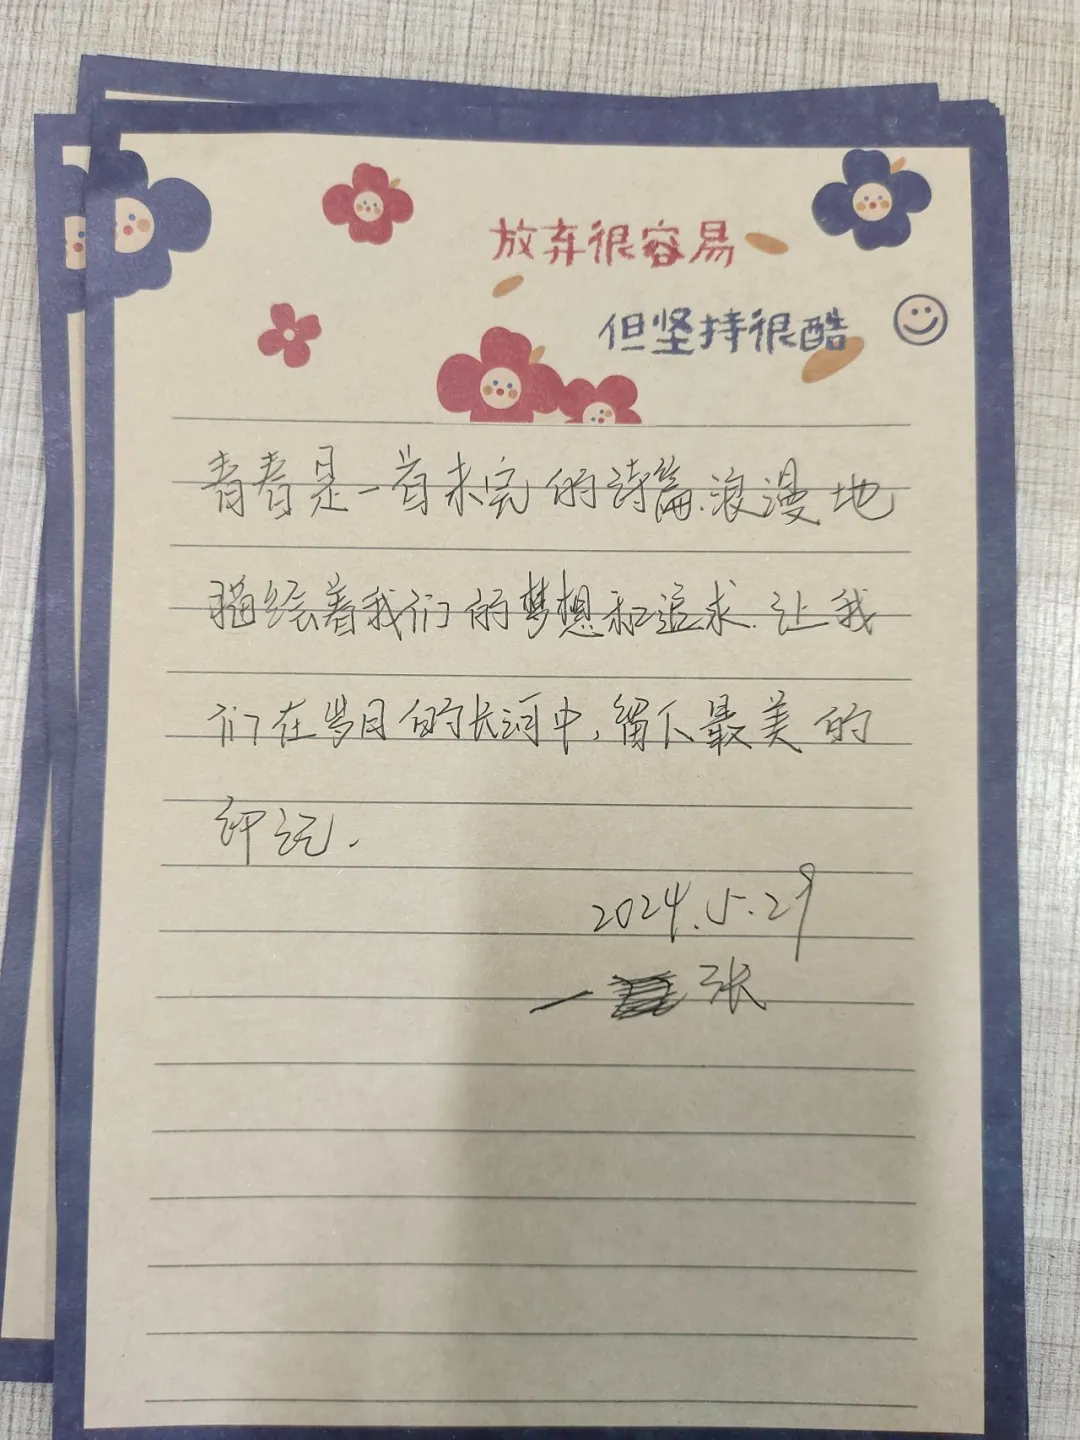 放弃很容易
但坚持很酷
青春是一首未完的诗篇.浪漫地
描绘着我们的梦想和追求.让我
们在岁月的长河中,留下最美的
印记.
2024.5.29
一 张